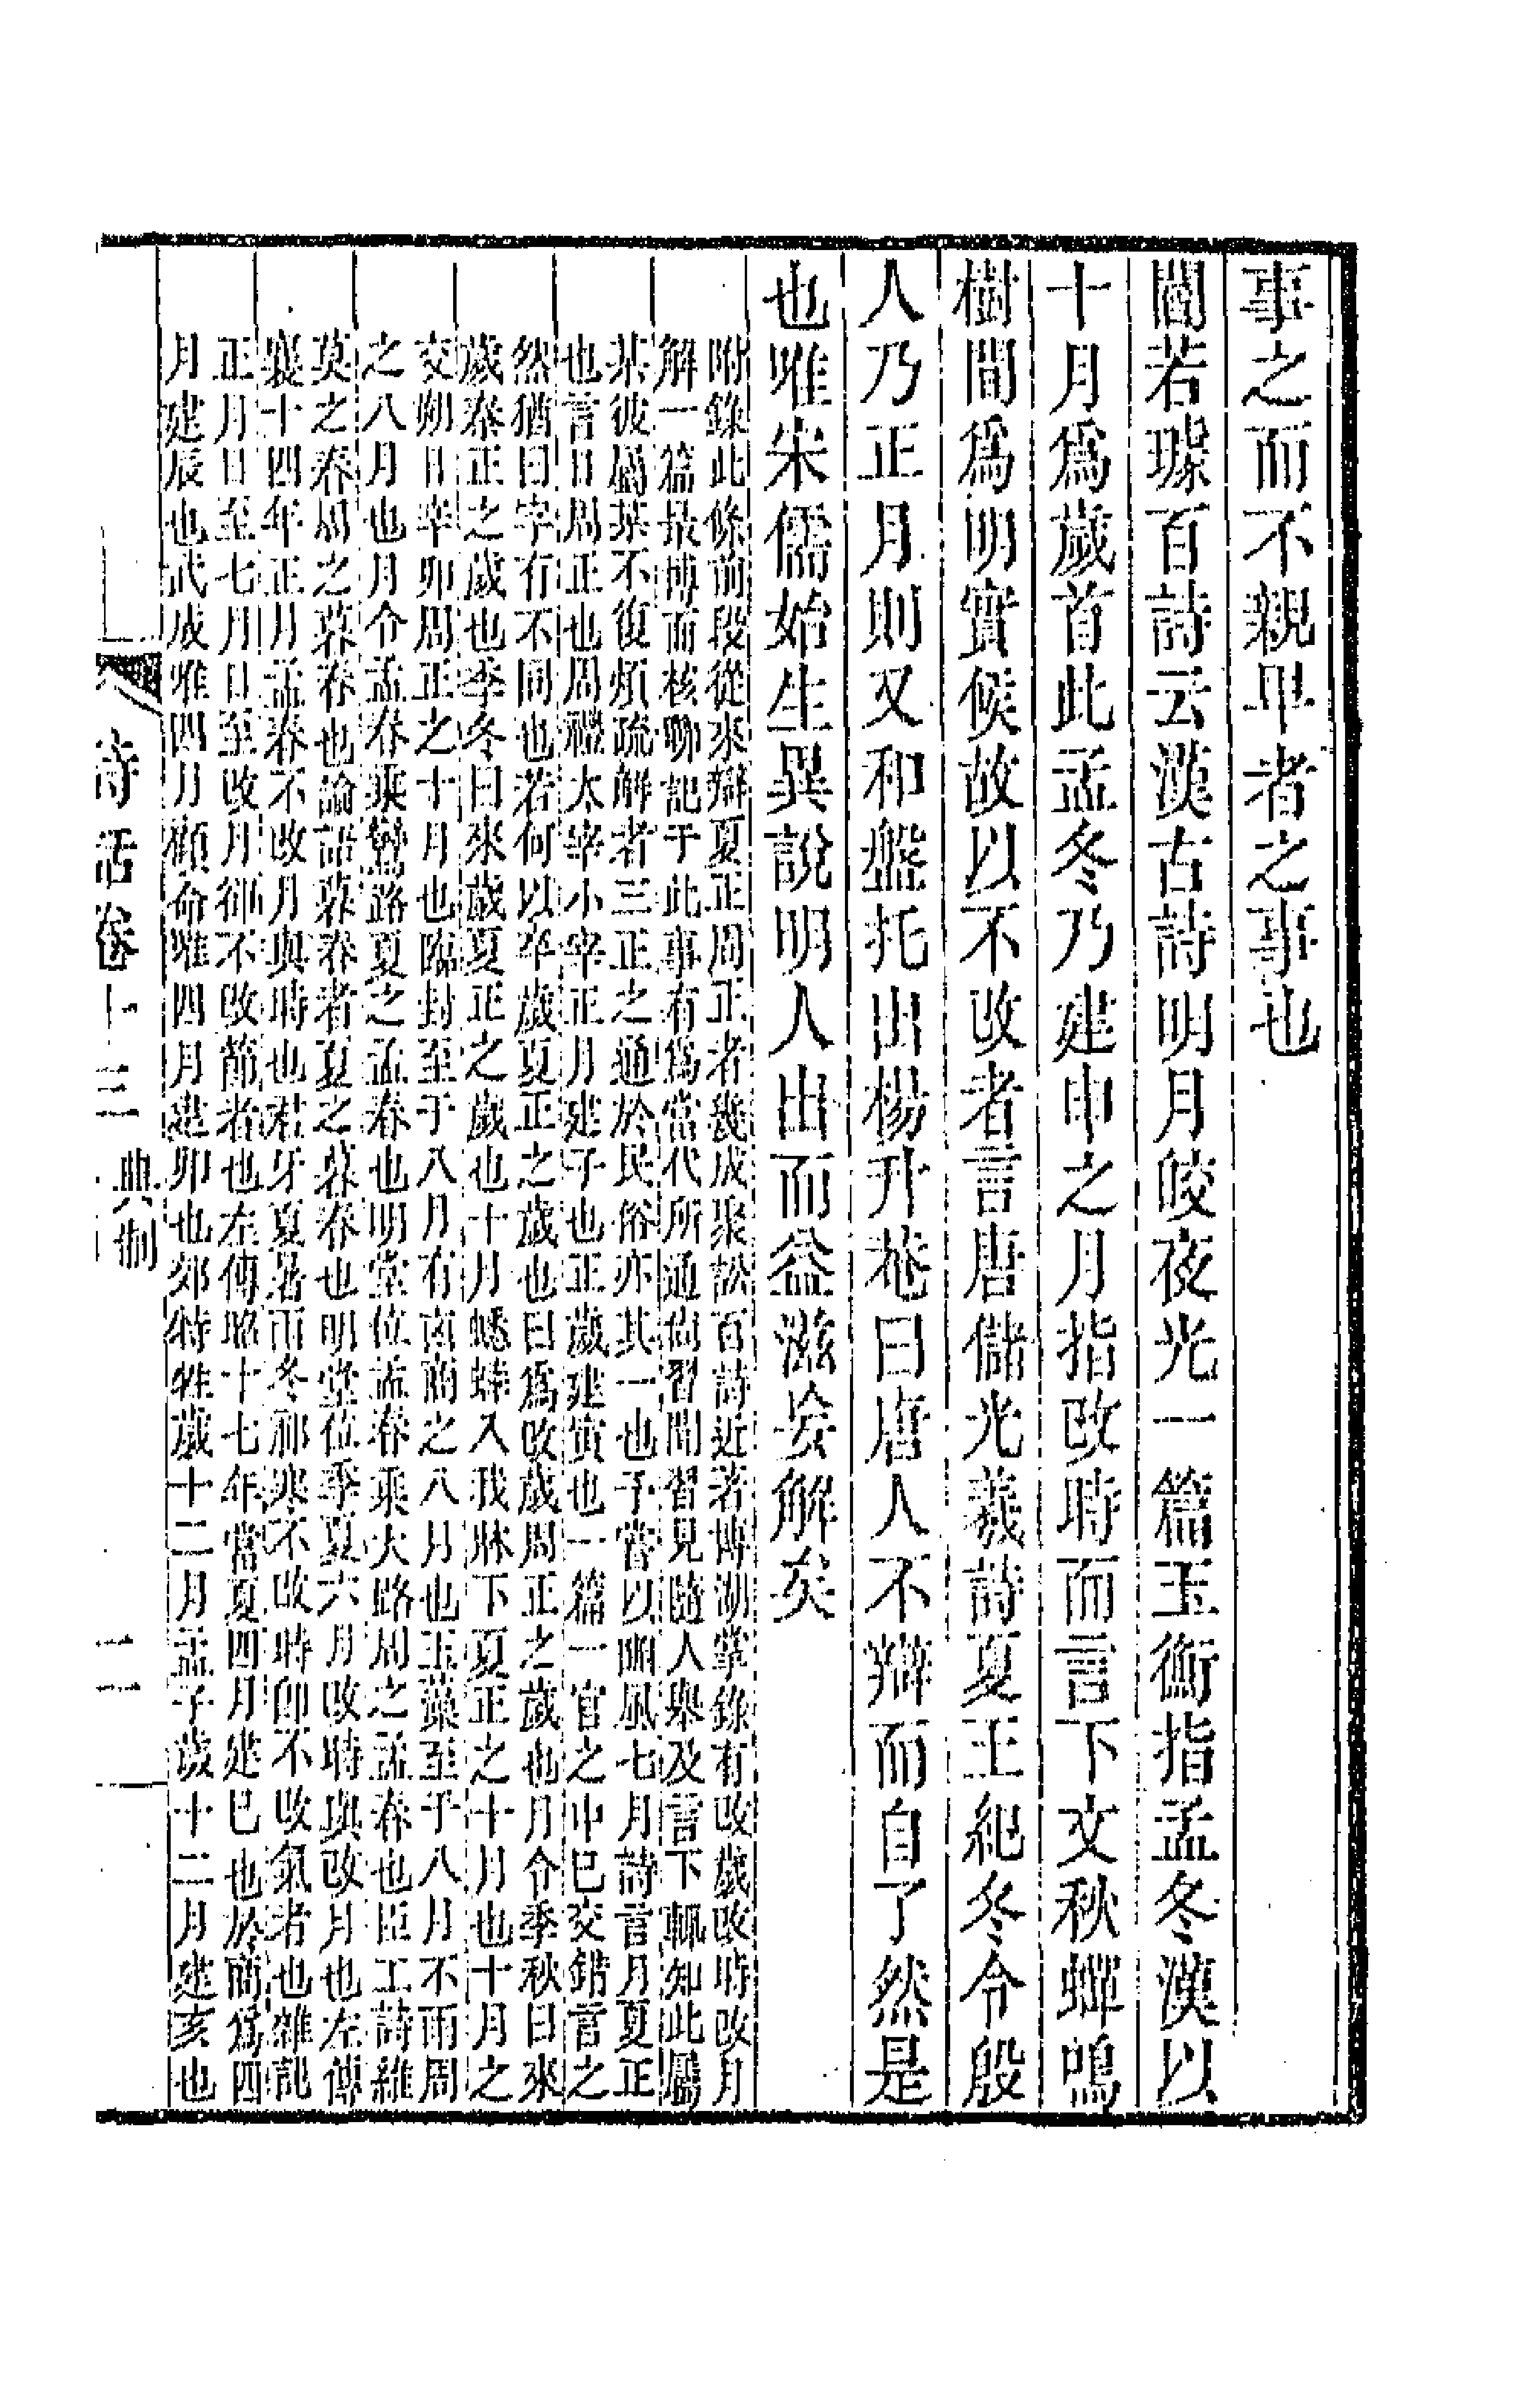 事之而不親卑者之事也
閻若璩百詩云漢古詩明月皎夜光一篇玉衡指孟冬漢以
十月爲歲首此孟冬乃建申之月指改時而言下文秋蟬鳴
樹間爲明實候故以不改者言唐儲光羲詩夏王紀冬令殷
人乃正月則又和盤托出楊升菴曰唐人不辯而自了然是
也唯宋儒始生異說明人出而益滋妄解矣
附錄此條前段從來辯夏正周正者幾成聚訟百詩近著博湖掌錄有改歲改時改月
解一篇最博而核聊記于此事有爲當代所通尚習聞習見隨人舉及言下輒知此屬
某彼屬某不復煩疏解者三正之通於民俗亦其一也予嘗以豳風七月詩言月夏正
也言日周正也周禮太宰小宰正月建子也正歲建寅也一篇一官之中已交錯言之
然猶曰字有不同也若何以卒歲夏正之歲也曰爲改歲周正之歲也月令季秋日來
歲秦正之歲也季冬日來歲夏正之歲也十月蟋蟀入我牀下夏正之十月也十月之
交朔日辛卯周正之十月也臨封至于八月有凶商之八月也玉藻至于八月不雨周
之八月也月令孟春乘鸞路夏之孟春也明堂位孟春乘大路周之孟春也臣工詩維
莫之春周之暮春也論語暮春者夏之暮春也明堂位季夏六月改時與改月也左傳
襄十四年正月孟春不改月與時也君牙夏暑雨冬祁寒不改時卽不改氣者也雜記
正月日至七月日至改月御不改節者也左傳昭十七年當夏四月建巳也於商爲四
月建辰也武成雅四月顧命唯四月建卯也郊特牲歲十二月孟子歲十二月建亥也
詩話卷十三 典制 二